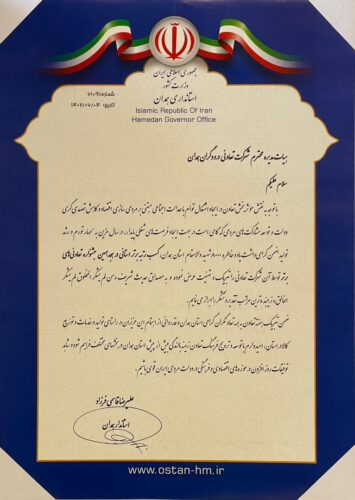 جمهوری اسلامی ایران
وزارت کشور
استانداری همدان
Islamic Republic Of Iran
Hamedan Governor Office
شماره:
تاریخ:
هیات مدیره محترم شرکت تعاونی درودگران همدان
سلام علیکم
با توجه به نقش موثر بخش تعاون در ایجاد اشتغال توام با عدالت اجتماعی مبتنی بر مردمی سازی اقتصاد و کاهش تصدی گری
دولت و توسعه مشارکت های مردمی که گامی است در جهت ایجاد فرصت های شغلی پایدار، در سال مزین به مهار تورم و رشد
تولید، ضمن گرامیداشت یاد و خاطره ۸۰۰۰ شهید والامقام استان همدان، کسب رتبه برتر استانی در جشنواره تعاونی های
برتر توسط آن شرکت تعاونی را تبریک و تهنیت عرض نموده و به مصداق حدیث شریف، من لم یشکر المخلوق لم یشکر
الخالق، از
ضمن تبریک هفته تعاون به همه تعاونگران گرامی استان همدان و قدردانی از اهتمام این عزیزان در راستای تولید و خدمات و توزیع
کالا در استان، امیدوارم با توسعه و ترویج فرهنگ تعاون زمینه بالندگی بیش از پیش استان همدان در بخشهای مختلف فراهم شود و شاهد
توفیقات روزافزون در حوزه های اقتصادی و فرهنگی در دولت مردمی ایران قوی باشیم.
علیرضا قاسمی فرزاد
استاندار همدان
www.ostan-hm.ir